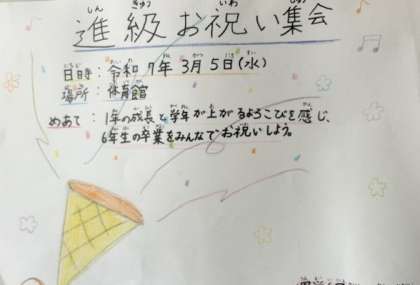 進級お祝い集会
日時：令和7年3月5日(水)
場所：体育館
めあて：1年の成長と学年が上がるよろこびを感じ、
6年生の卒業をみんなでお祝いしよう。